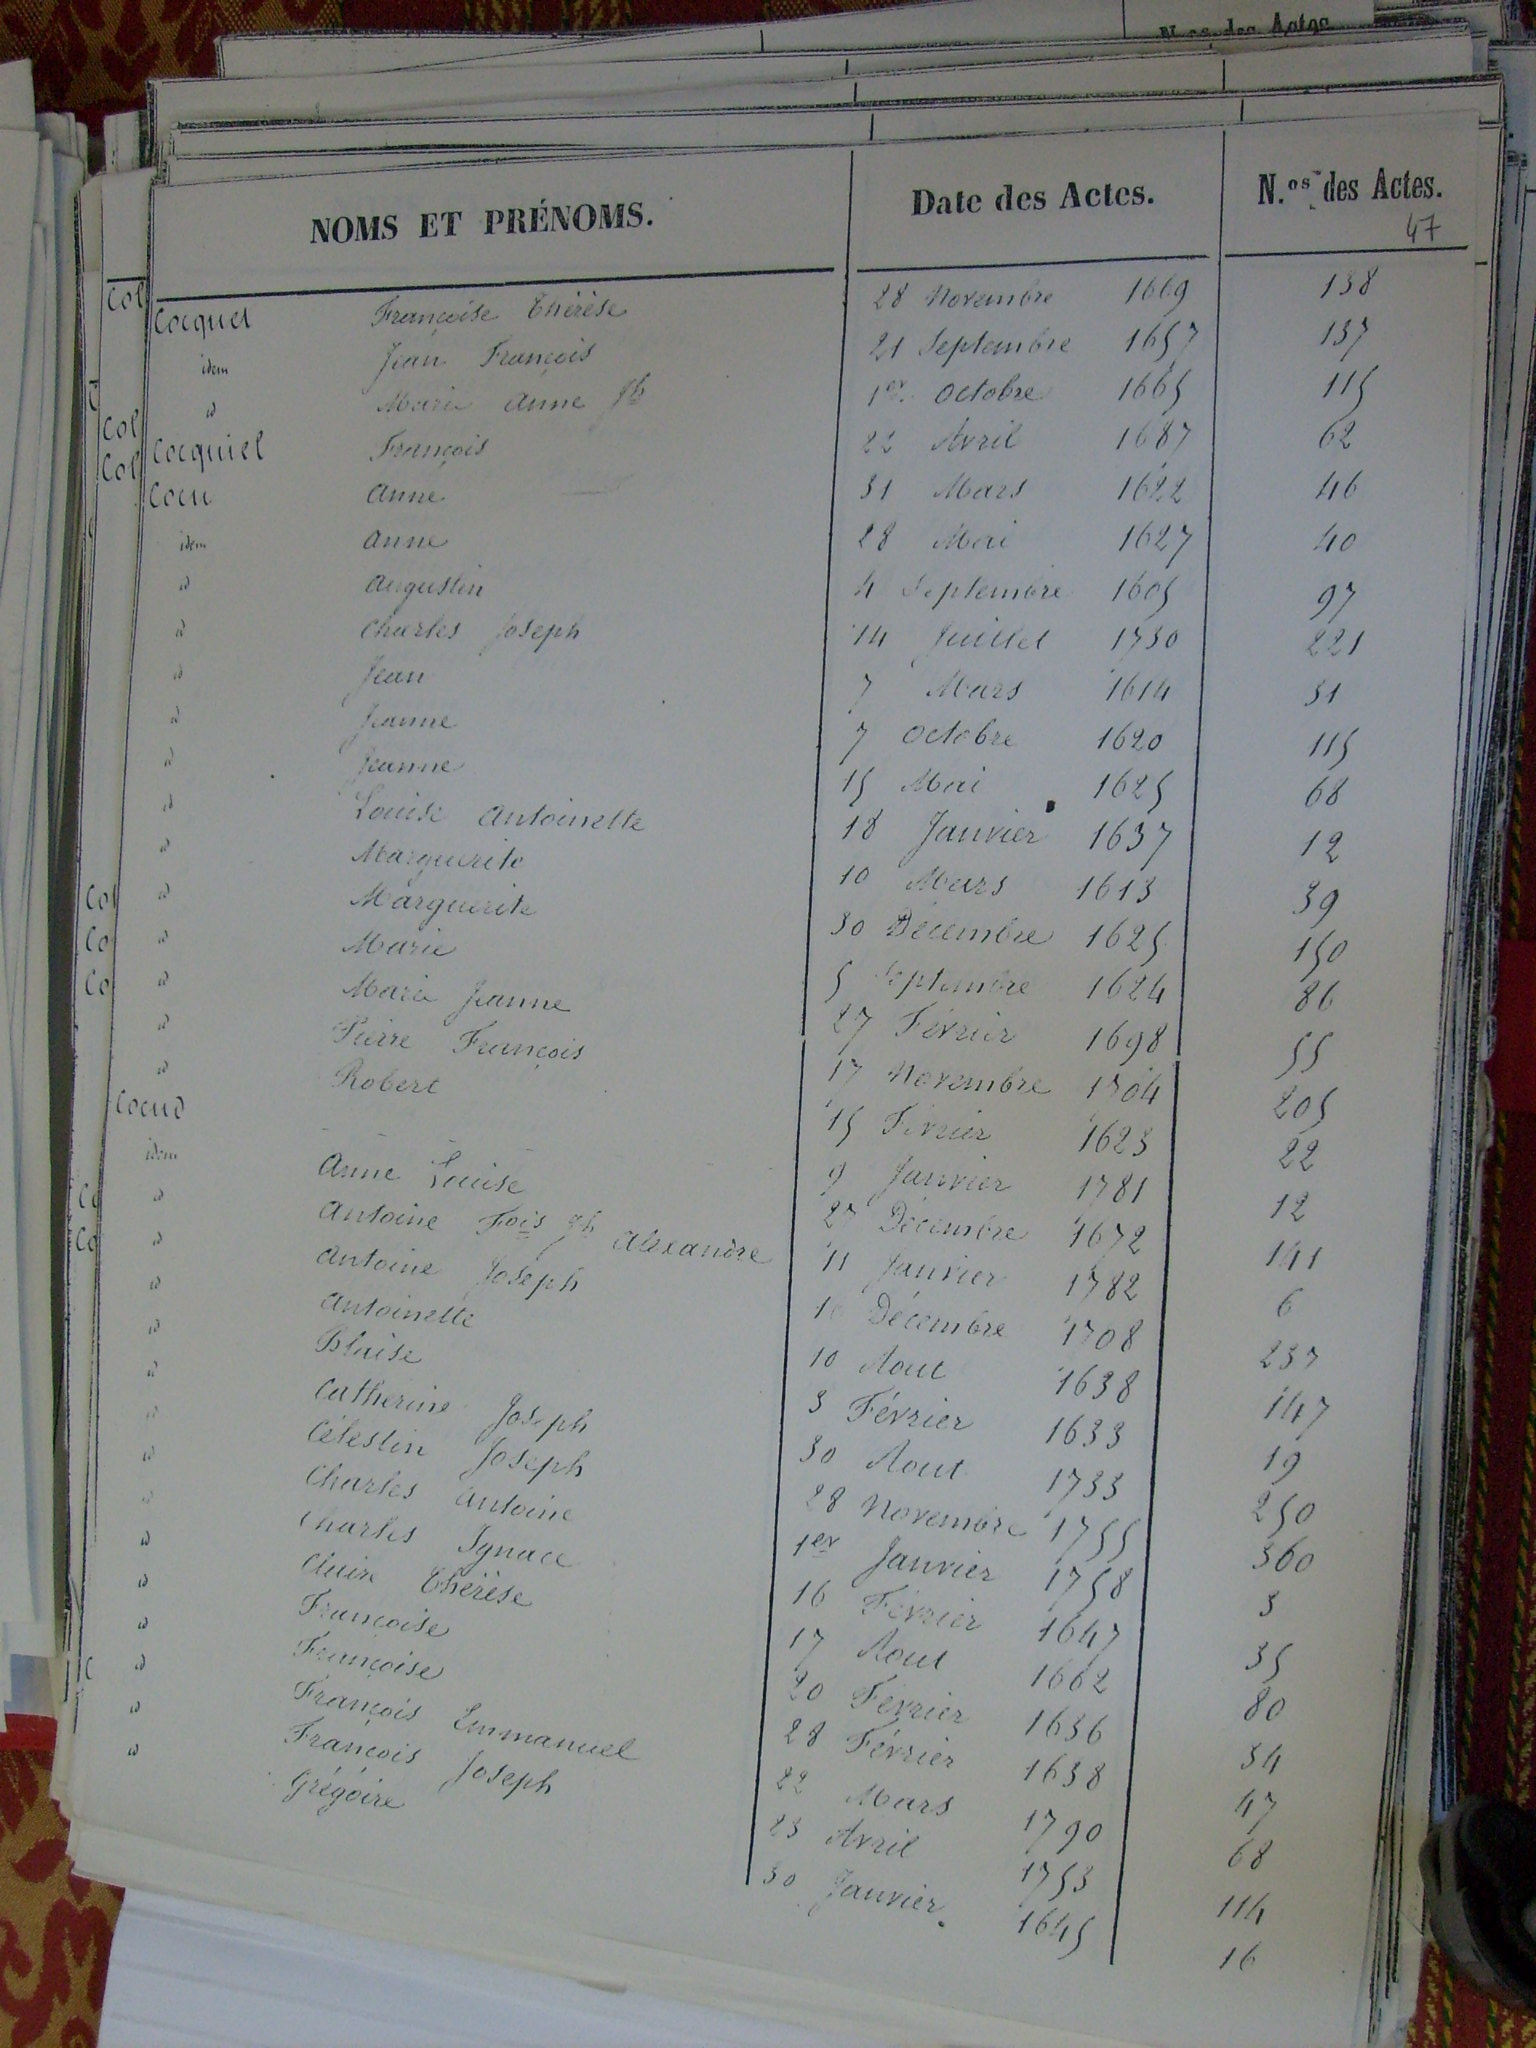 N.os des Actes
NOMS ET PRÉNOMS. Date des Actes. N.os des Actes.
47
Cocquet Françoise Thérèse 28 Novembre 1669 138
idem Jean François 21 Septembre 1657 137
id Marie Anne Jh 1er Octobre 1665 115
Cocquiel François 22 Avril 1687 62
Cocu Anne 31 Mars 1622 46
idem Anne 28 Mai 1627 40
id Augustin 4 Septembre 1605 97
id Charles Joseph 14 Juillet 1730 221
id Jean 7 Mars 1614 31
id Jeanne 7 Octobre 1620 115
id Jeanne 15 Mai 1625 68
id Louise Antoinette 18 Janvier 1637 12
id Marguerite 10 Mars 1613 39
id Marguerite 30 Décembre 1625 150
id Marie 5 Septembre 1624 86
id Marie Jeanne 27 Février 1698 55
id Pierre François 17 Novembre 1704 205
id Robert 15 Février 1623 22
Cocud Anne Louise 9 Janvier 1781 12
idem Antoine Fois Jh Alexandre 27 Décembre 1672 141
id Antoine Joseph 11 Janvier 1782 6
id Antoinette 10 Décembre 1708 237
id Blaise 10 Aout 1638 147
id Catherine Joseph 3 Février 1633 19
id Célestin Joseph 30 Aout 1733 250
id Charles Antoine 28 Novembre 1755 360
id Charles Ignace 1er Janvier 1758 3
id Clair Thérèse 16 Février 1647 35
id Françoise 17 Aout 1662 80
id Françoise 20 Février 1636 34
id François Emmanuel 28 Février 1638 47
id François Joseph 22 Mars 1790 68
id Grégoire 23 Avril 1753 114
30 Janvier 1645 16
Col
Col
Col
Col
Co
Co
Co
Co